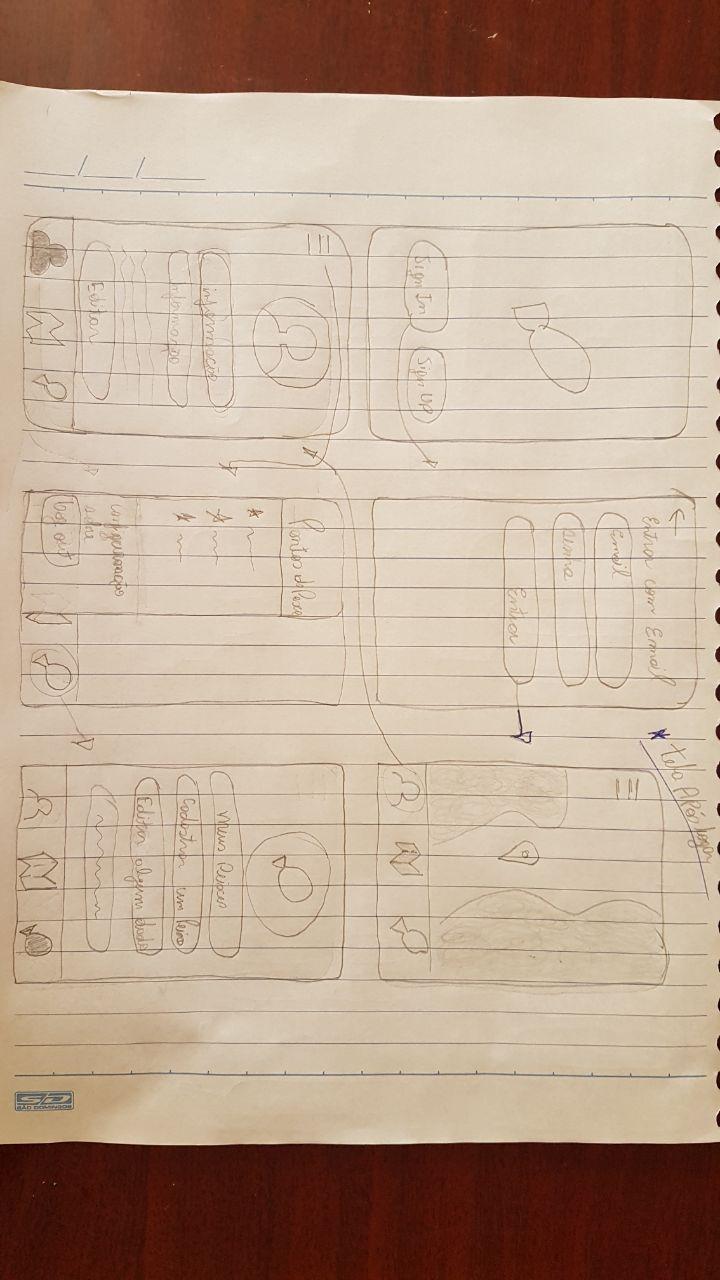 Sign In
Sign Up
Entrar com Email
Email
Senha
Entrar
* tela Após logar
informação
informação
Editar
Pontos de Pesca
configuração
Log out
meus Peixes
Cadastrar um Peixe
Editar algum dado
SD
SÃO DOMINGOS